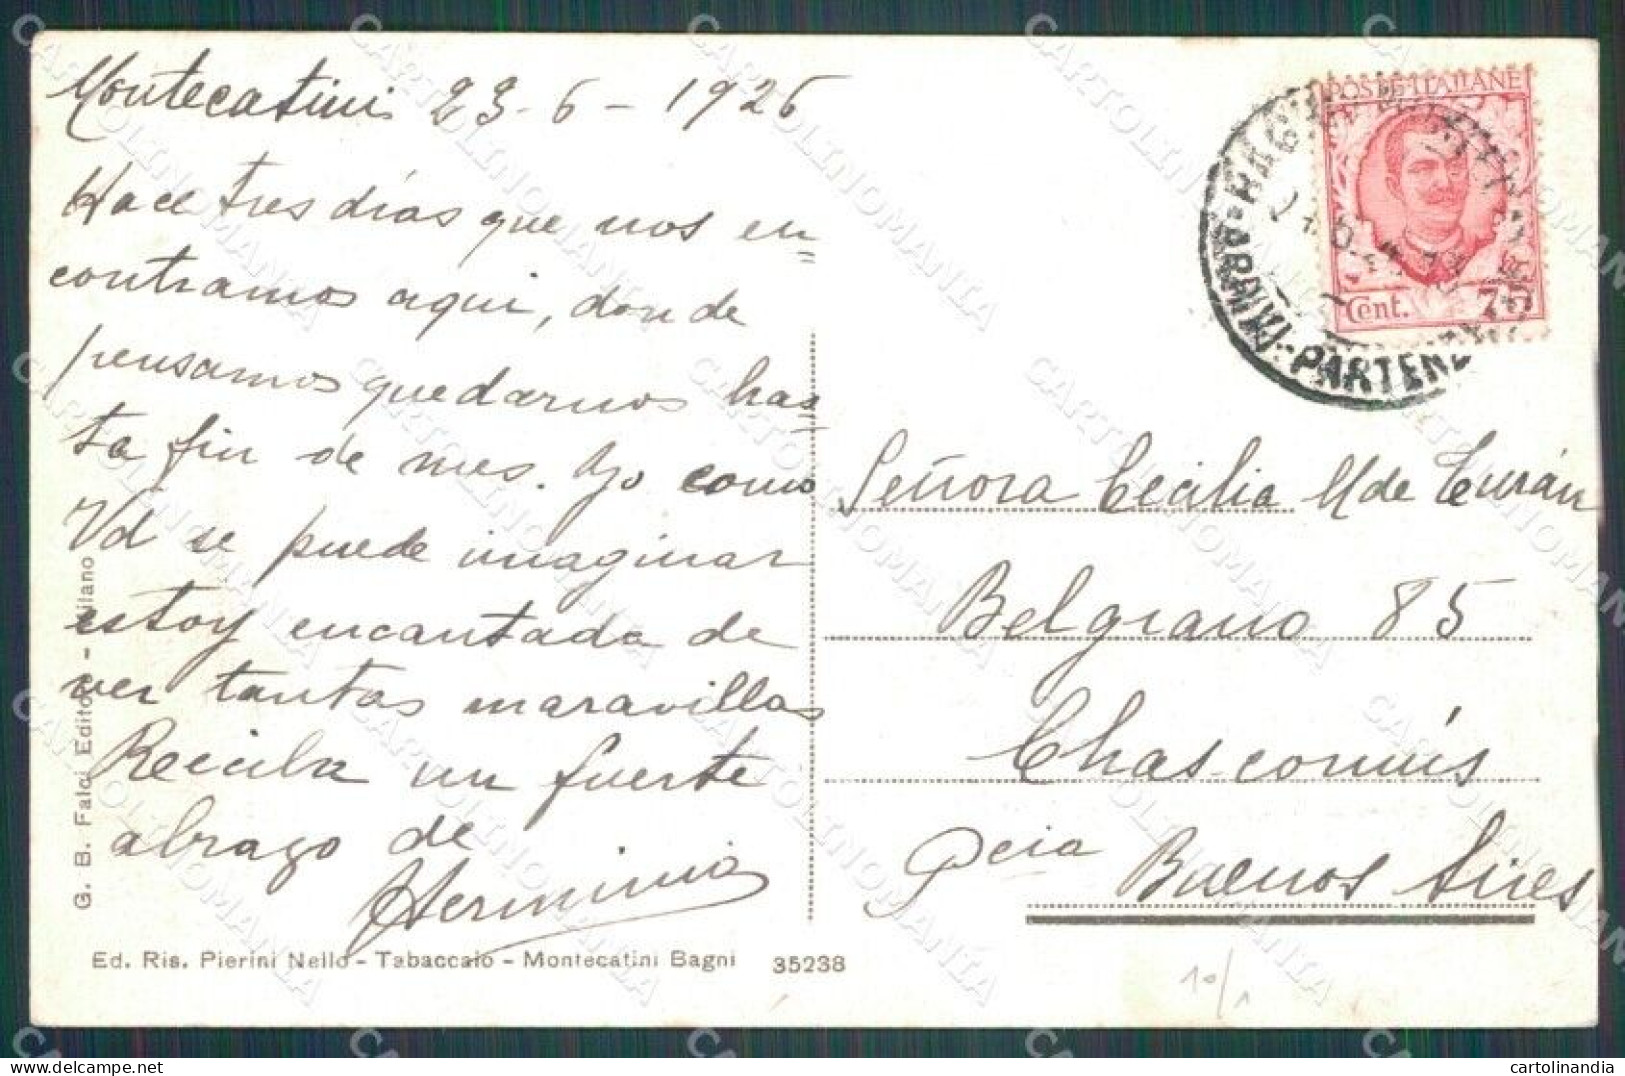 Montecatini 23-6-1926
Hace tres días que nos en=
contramos aqui, donde
pensamos quedarnos has=
ta fin de mes. Yo como
Vd se puede imaginar
estoy encantada de
ver tantas maravillas
Reciba un fuerte
abrazo de
Herminia
G. B. Falci Editore - Milano
Ed. Ris. Pierini Nello - Tabaccaio - Montecatini Bagni 35238
POSTE ITALIANE
Cent. 75
ARRIVI-PARTENZ
Señora Cecilia M de
Belgrano 85
Chascomús
Pcia Buenos Aires
10/1
cartolinandia